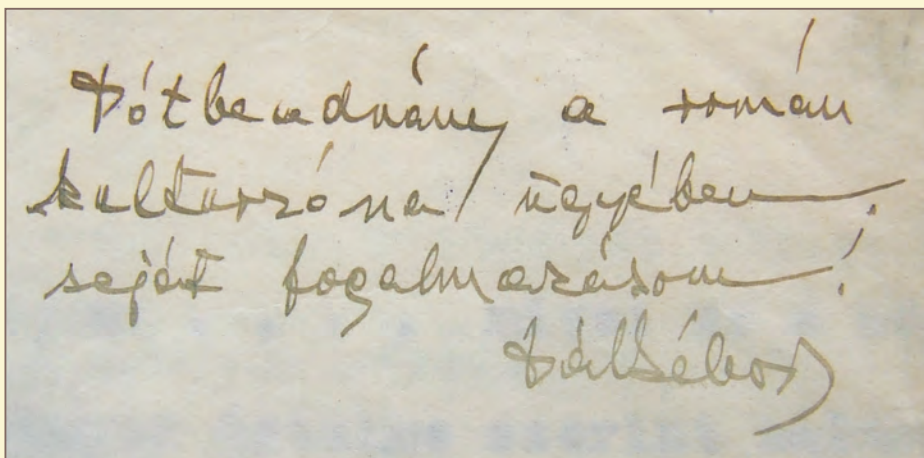 Pótbeadvány a román
kulturzóna ügyében,
saját fogalmazásom!
Pál Gábor